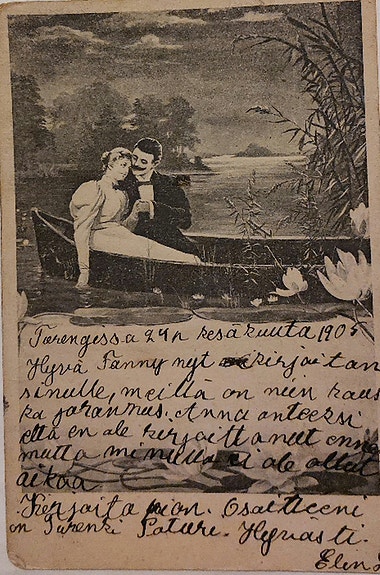 Turengissa 24 p kesäkuuta 1905
Hyvä Fanny nyt kirjoitan
sinulle, meillä on niin haus
ka
että en ole kirjoittanut ennen
mutta minulla ei ole ollut
aikaa
Kirjoita pian. Osoitteeni
on Turenki Hyvästi.
Elin